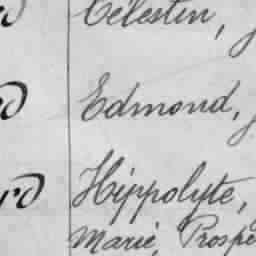 Célestin,
Edmond,
rd Hippolyte,
Marie, Prospe